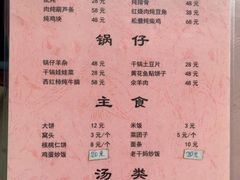 肉炖葫芦条 28元
炖鸡块 48元
炖排骨
红烧肉炖豆角 48元
松蘑炖柴鸡 68元
锅仔
锅仔羊杂 28元
干锅娃娃菜 28元
西红柿炖牛腩 58元
干锅土豆片 28元
黄花鱼贴饼子 58元
汆羊肉 48元
主食
大饼 12元
窝头 3元/个
核桃仁饼 8元/个
鸡蛋炒饭 20元
米饭 3元
菜团子 5元/个
面条 10元
老干妈炒饭 20元
汤类